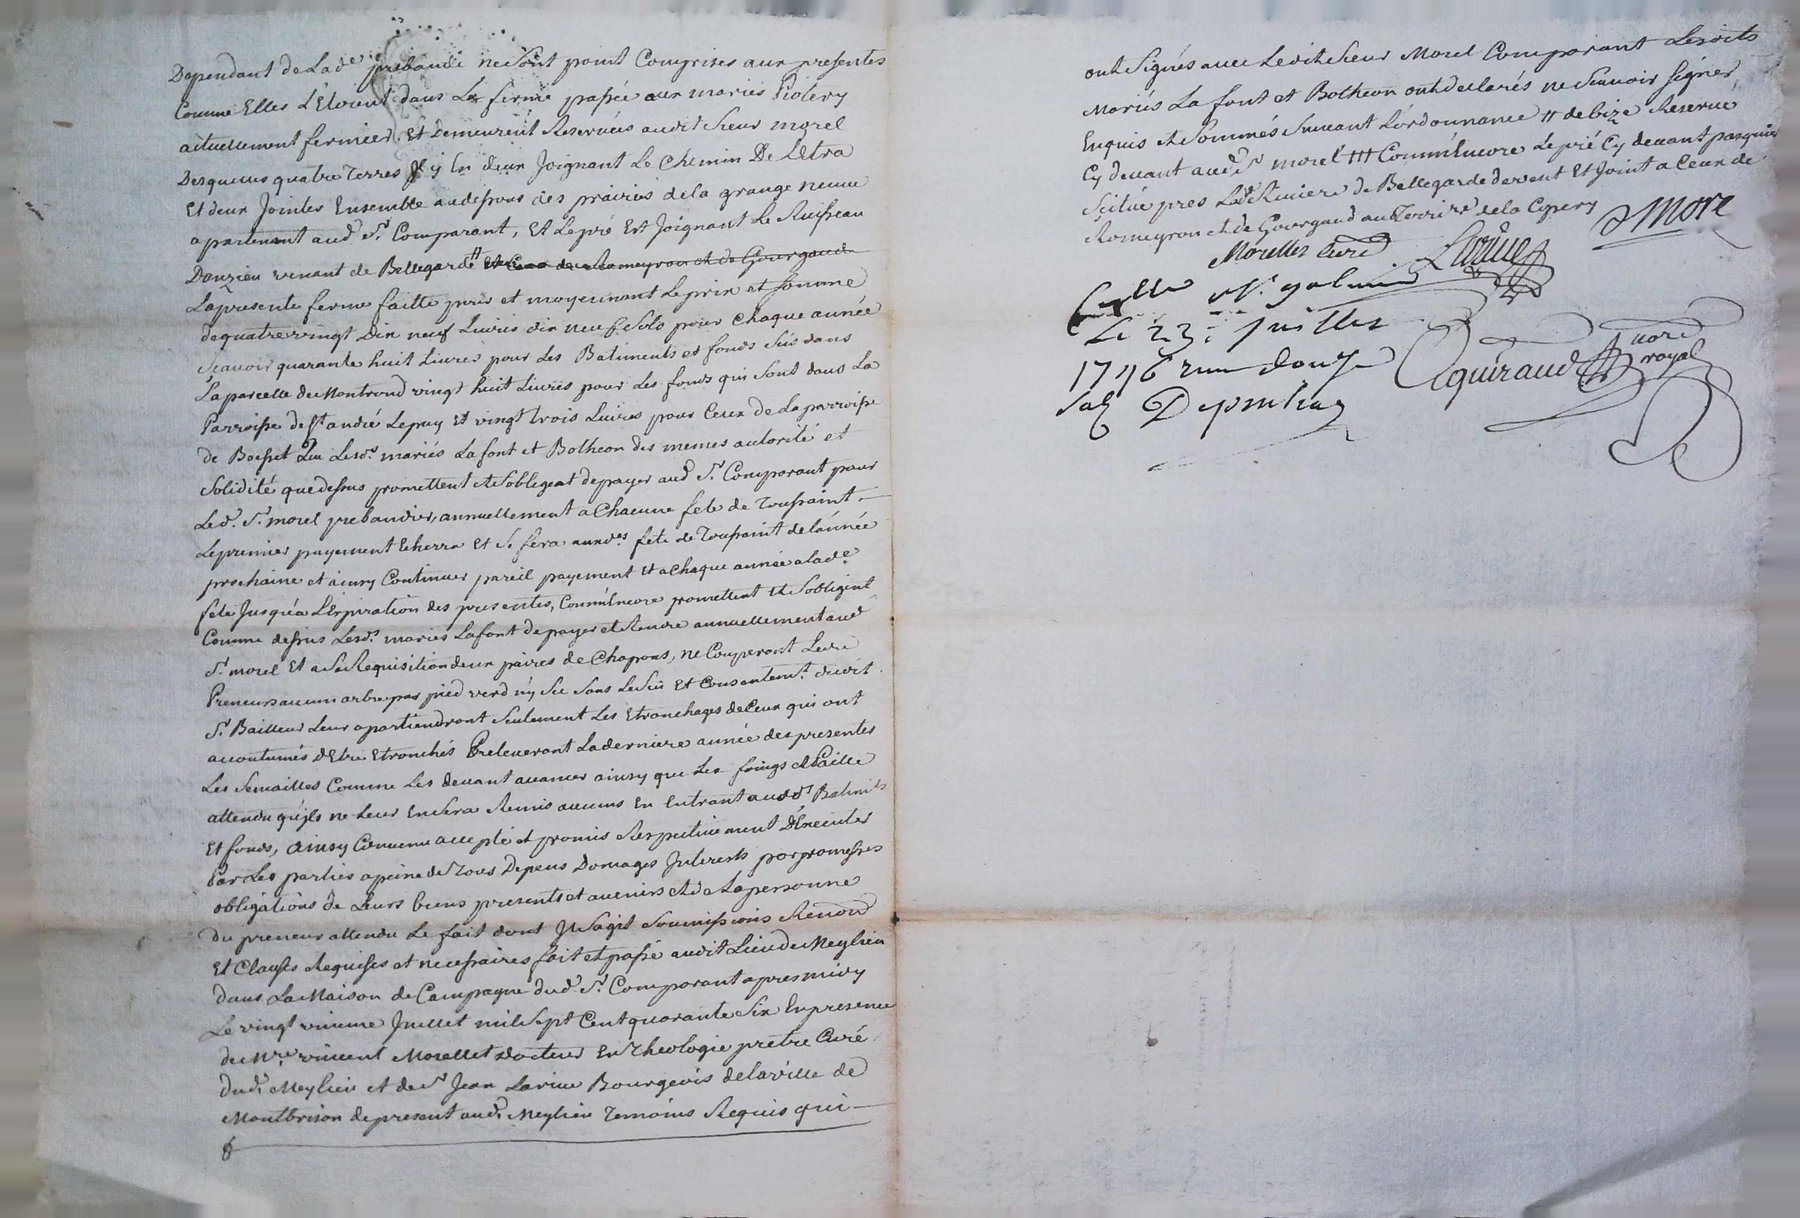 Dependant de Lad.e prebande ne sont point Comprises aux presentes
Comme Elles L'Etoient dans La ferme passée aux mariés Piotery
actuellement fermiers Et Demeurent Reservées audit Sieur morel
Desquelles quatre Terres Il y En a deux Joignant Le Chemin De Letra
Et deux Jointes Ensemble audessous des prairies dela grange neuve
apartenant aud. Sr. Comparant, Et Lepré Est Joignant Le Ruisseau
Danzieu venant de Bellegarde # et Ceux de Romeyron et de Gourgaud
La presente ferme faitte pour et moyennant Leprix et somme
dequatrevingt Dix neuf Livres dix neuf Sols pour Chaque année
Sçavoir quarante huit Livres pour Les Batiments et fonds Sis dans
La parcelle de Montrond vingt huit Livres pour Les fonds qui sont dans La
Parroisse de St. andré Lepuy Et vingt trois Livres pour Ceux de La parroisse
de Boisset Que Lesd.s mariés Lafont et Botheon des memes autorité et
Solidité quedessus promettent et Sobligent depayer aud. Sr. Comparant pour
Led. Sr. morel prebandier, annuellement a Chacune fete de Toussaint
Lepremier payement Echerra Et Se fera auxd.es fete de Toussaint delannée
prochaine et ainsy Continuer pareil payement Et a Chaque année alad.e
fete Jusqu'a L'Expiration des presentes, Comm'Encore promettent Et Sobligent
Comme dessus Lesd.s mariés Lafont depayer et Rendre annuellement aud.
Sr. morel Et a Sa Requisition deux paires de Chapons, ne Couperont Lesd.
Preneurs aucun arbre par pied verd ny Sec Sans Le Sçu Et Consentem.t dudit
Sr. Bailleur Leur apartiendront Seulement Les Etronchages de Ceux qui ont
accoutumés dEtre Etronchés Preleveront Laderniere année des presentes
Les Semailles Comme Les devant avancer ainsy que Les foings et Paille
attendu qu'ils ne Leur En Sera Remis aucuns En Entrant auxd.s Batim.ts
Et fonds, ainsy Convenu accepté et promis Respectivement D'Executer
Par Les parties apeine de Tous Depens Domages Interests par promesses
obligations de Leurs biens presents et avenirs et de Lapersonne
du preneur attendu Le fait dont Il Sagit Soumissions Renon.
Et Clauses Requises et necessaires fait et passé audit Lieu de Meylieu
dans La Maison de Campagne dud. Sr. Comparant apres midy
Le vingt unieme Juillet mil Sept Cent quarante Six En presence
de M.re vincent Morellet docteur En Theologie pretre Curé
dud. Meylieu et de Sr. Jean Larive Bourgeois delaville de
Montbrison depresent aud. Meylieu Temoins Requis qui
ont Signés avec Ledit Sieur Morel Comparant Lesdits
Mariés La font et Botheon ont declarés ne Scavoir Signer
Enquis et Sommés Suivant Lordonnance # de bize Reservé
Cy devant aud. Sr. morel ### Comm'Encore Le pré Cy devant pasquier
Scitué pres La Riviere de Bellegarde devent Et Joint a Ceux de
Romeyron et de Gourgaud au Terrire. dela
Morellet Curé Larive Morel
Conllé a St. galmier
Le 23e. Juillet
1746 reçu douze
Sols
Guiraud no.re royal